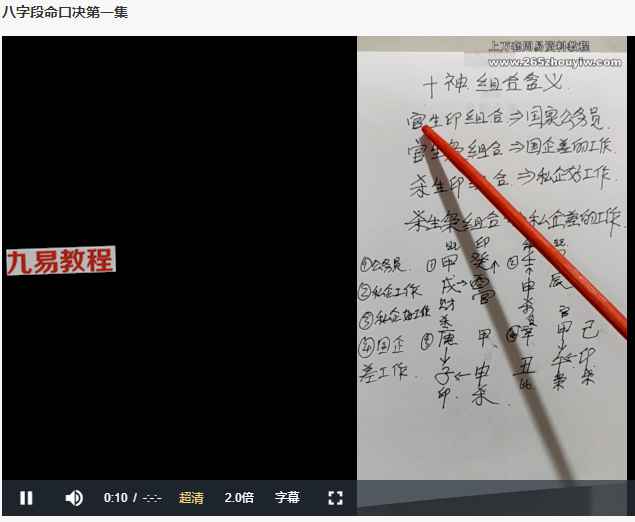 八字段命口决第一集
上万套周易资料教程
www.265zhouyiw.com
十神组合含义
官生印组合⇒国家公务员.
官生枭组合⇒国企差的工作.
杀生印组合⇒私企好工作.
杀生枭组合⇒私企差的工作.
九易教程
①公务员.
②私企工作
③私企好工作
④国企
差工作.
① 甲 癸
②
戊
官
申
辰
财
杀
③ 庚 甲
甲 己
子←申
丑
印
印. 杀.
0:10 / -:-:-
超清
2.0倍
字幕